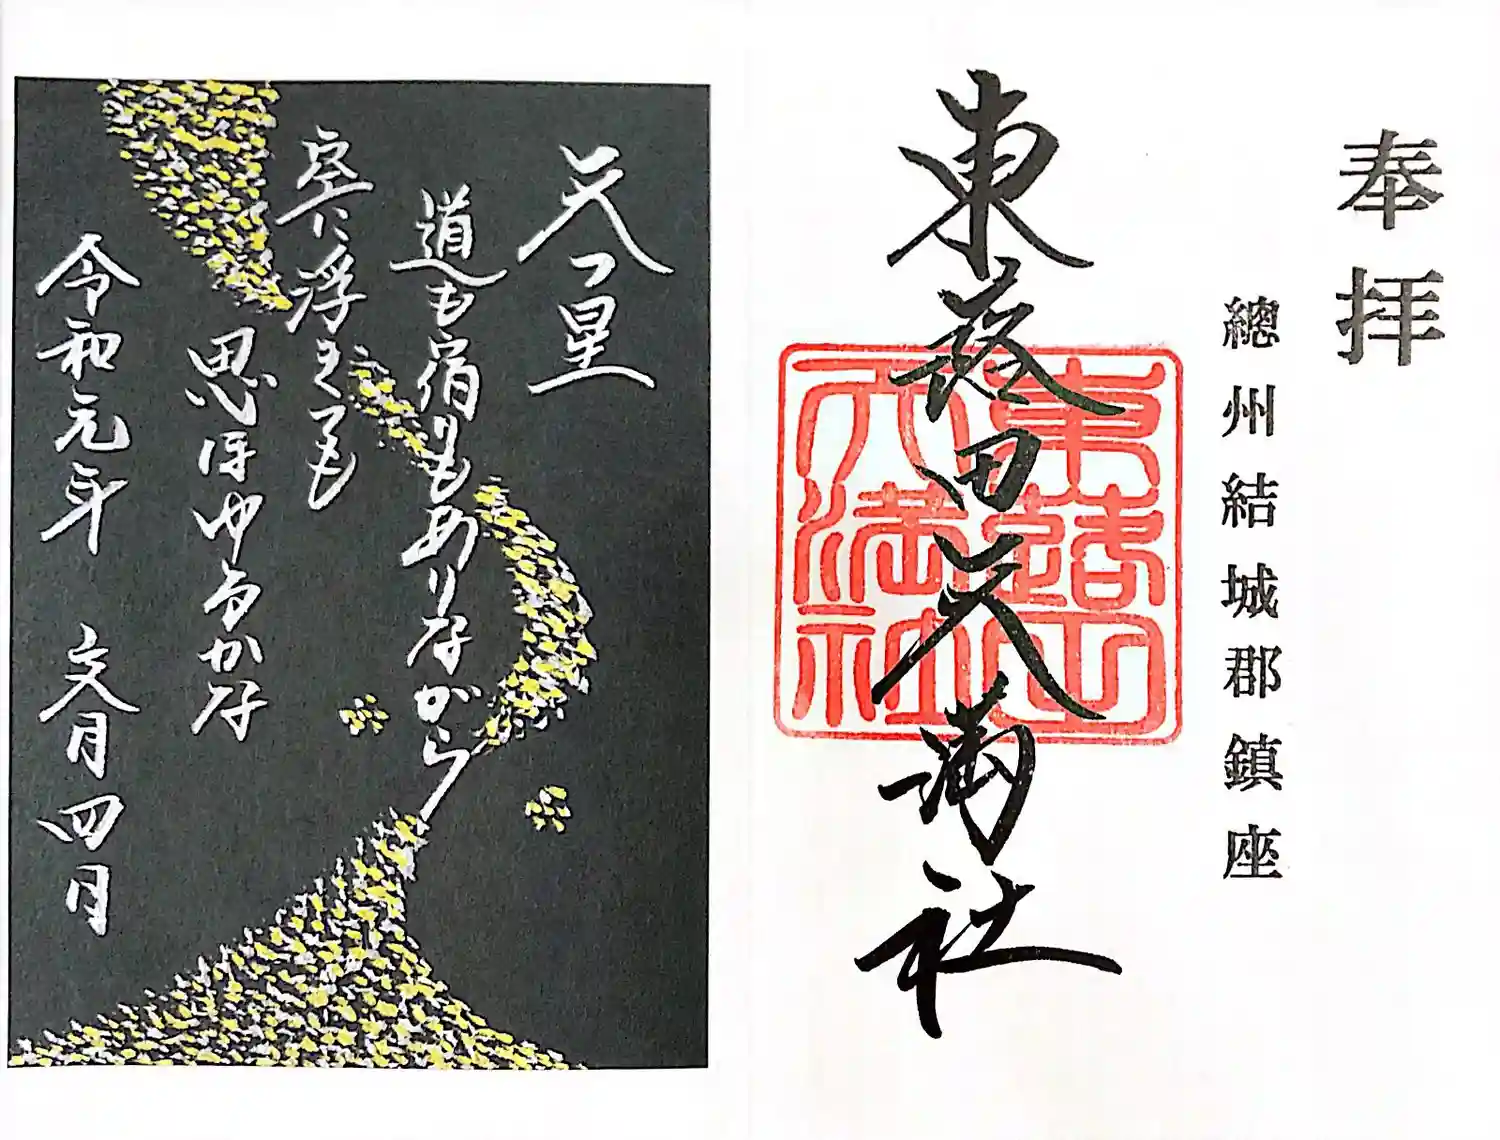 奉拝
總州結城郡鎮座
東蕗田天満社
東蕗田
天満社
天つ星
道も宿りもありながら
空に浮きても
思ほゆるかな
令和元年 文月四日